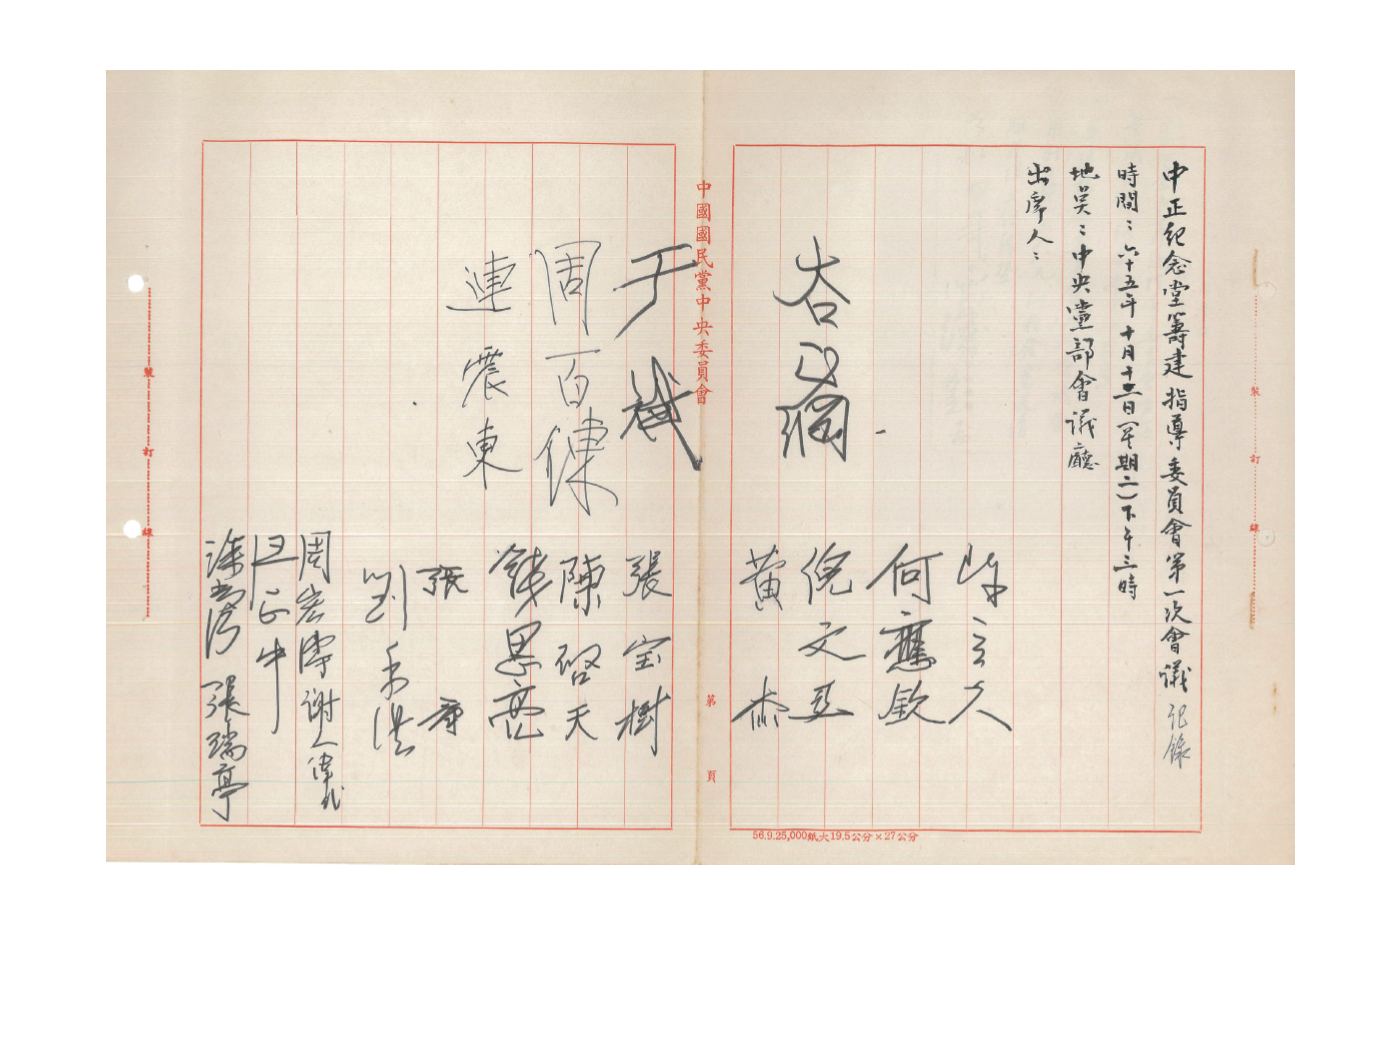 中正紀念堂籌建指導委員會第一次會議記錄
時間：六十五年十月十二日(星期二)下午三時
地點：中央黨部會議廳
出席人：
陳立夫
何應欽
谷正綱
倪文亞
黃杰
中國國民黨中央委員會
第 頁
于斌
張宝樹
周百鍊
陳啓天
錢思亮
連震東
劉季洪
周宏濤
謝
張瑞亭
裝 訂 線
裝 訂 線
56.9.25,000紙大19.5公分×27公分